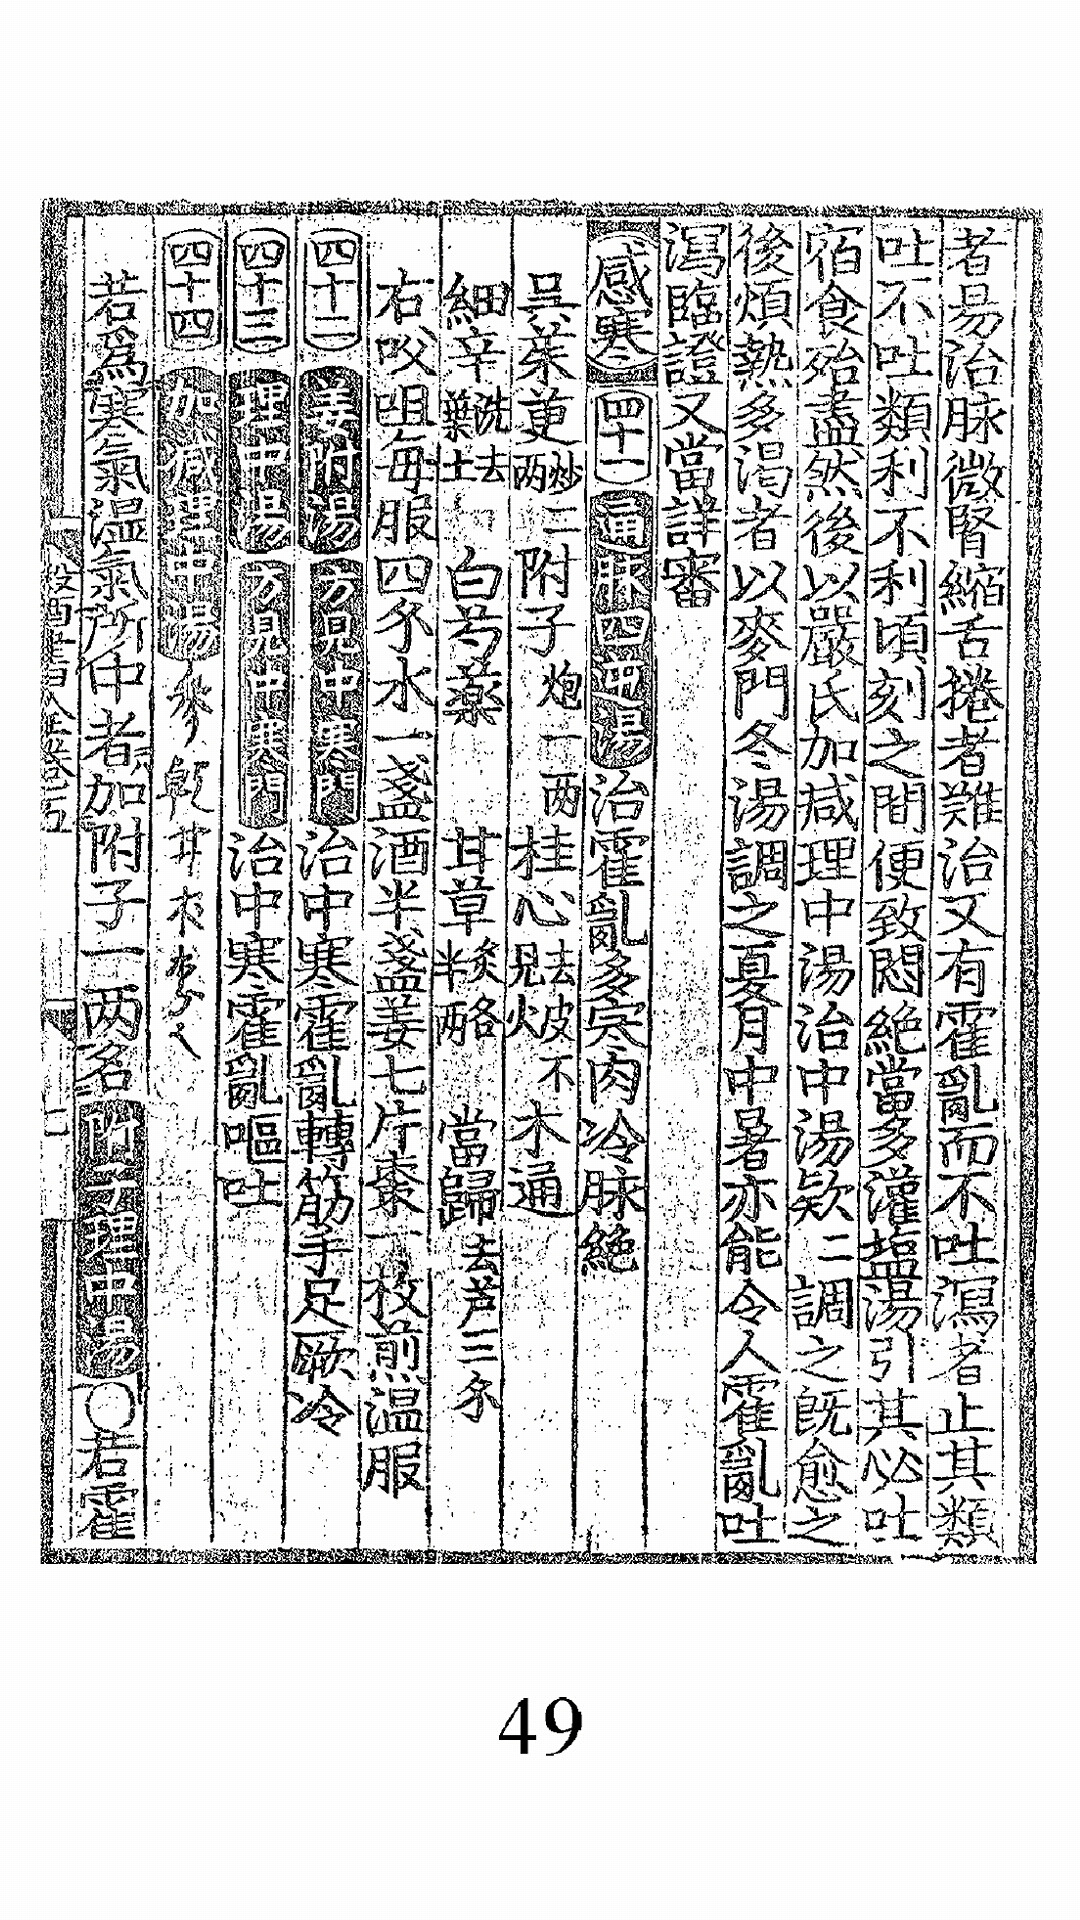 者易治脉微腎縮舌捲者難治又有霍亂而不吐瀉者止其類
吐不吐類利不利頃刻之間便致悶絶當多灌塩湯引其必吐
宿食殆盡然後以嚴氏加减理中湯治中湯欵二調之既愈之
後煩熱多渴者以麥門冬湯調之夏月中暑亦能令人霍亂吐
瀉臨證又當詳審
感寒 四十一 通脉四逆湯 治霍亂多寒肉冷脉絶
吴茱萸炒二两 附子炮一两 桂心去皮不見火 木通
細辛洗去葉土 白芍藥 甘草炙半两 當歸去芦三禾
右㕮咀每服四禾水一盞酒半盞姜七片棗一枚煎温服
四十二 姜附湯 方見中寒門 治中寒霍亂轉筋手足厥冷
四十三 理中湯 方見中寒門 治中寒霍亂嘔吐
四十四 加减理中湯
若爲寒氣温氣所中者加附子一两名附子理中湯○若霍
49